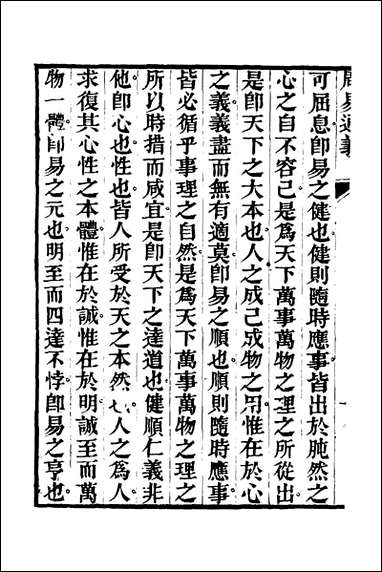 周易通義
可屈息卽易之健也健則隨時應事皆出於肫然之
心之自不容己是爲天下萬事萬物之理之所從出
是卽天下之大本也人之成己成物之用惟在於心
之義義盡而無有適莫卽易之順也順則隨時應事
皆必循乎事理之自然是爲天下萬事萬物之理之
所以時措而咸宜是卽天下之達道也健順仁義非
他卽心也性也皆人所受於天之本然人之爲人
求復其心性之本體惟在於誠惟在於明誠至而萬
物一體卽易之元也明至而四達不悖卽易之亨也